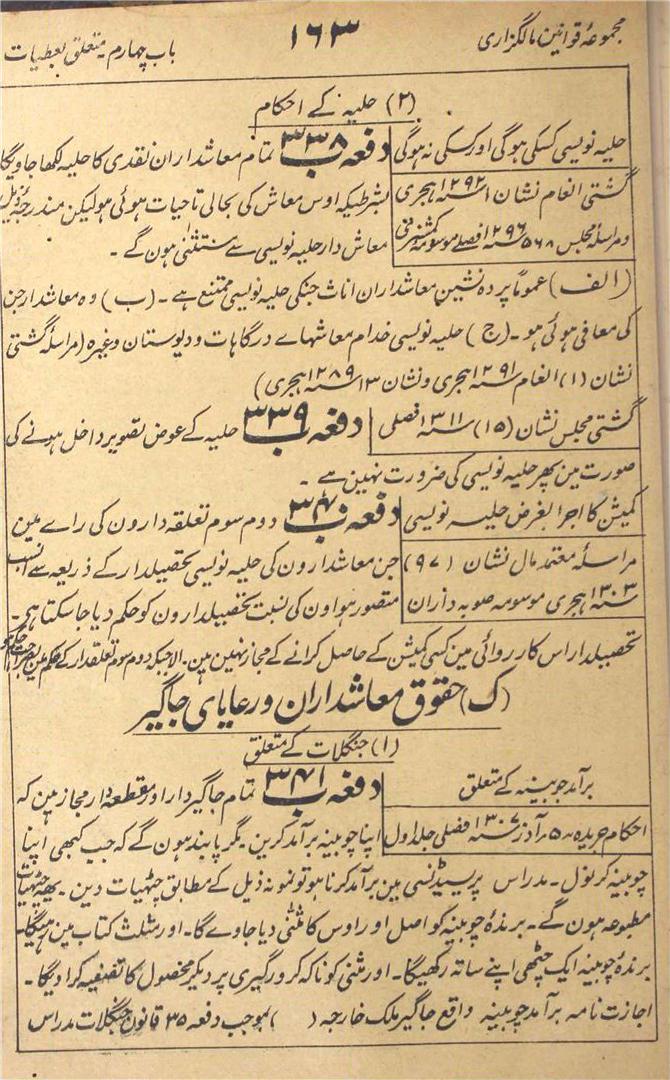 مجموعۂ قوانین مالگزاری
۱۶۳
باب چہارم۔ متعلق بعطیات
(۲) حلیہ کے احکام
حلیہ نویسی کسکی ہوگی اور کسکی نہ ہوگی
دفعہ ۳۳۸ ب تمام معاشداران نقدی کا حلیہ لکھا جاویگا
گشتی انعام نشان ۱ سنہ ۱۲۹۲ ہجری
بشرطیکہ اوس معاش کی بحالی تاحیات ہوئی ہو لیکن مندرجۂ ذیل
ومراسلۂ مجلس ۵۶۸ سنہ ۱۲۹۶ فصلے موسومہ کمشنر
معاش دار حلیہ نویسی سے مستثنیٰ ہون گے ۔
(الف) عموماً پردہ نشین معاشداران اناث جنکی حلیہ نویسی ممتنع ہے ۔ (ب) وہ معاشدار جن
کی معافی ہوئی ہو ۔ (ج) حلیہ نویسی خدام معاشہاے درگاہات و دیوستان وغیرہ (مراسلۂ گشتی
نشان (۱) انعام سنہ ۱۲۹۱ ہجری ونشان ۱۳ سنہ ۱۲۸۹ ہجری)
گشتی مجلس نشان (۱۵) سنہ ۱۳۱۱ فصلی
دفعہ ۳۳۹ ب حلیہ کے عوض تصویر داخل ہونے کی
صورت مین پھر حلیہ نویسی کی ضرورت نہین ہے ۔
کمیشن کا اجرا بغرض حلیہ نویسی
دفعہ ۳۴۰ ب دوم سوم تعلقہ دارون کی راے مین
مراسلۂ معتمد مال نشان (۹۷)
جن معاشدارون کی حلیہ نویسی تحصیلدار کے ذریعہ سے انسب
سنہ ۱۳۰۳ ہجری موسومہ صوبہ داران
متصور ہو اون کی نسبت تحصیلدارون کو حکم دیا جا سکتا ہی ۔
تحصیلدار اس کارروائی مین کسی کمیشن کے حاصل کرانے کے مجاز نہین ہین ۔ الا جبکہ دوم سوم تعلقدار کے حکم مین
(ک) حقوق معاشداران و رعایای جاگیر
(۱) جنگلات کے متعلق
برآمد چوبینہ کے متعلق
دفعہ ۳۴۱ ب تمام جاگیردار اور مقطعہ دار مجاز ہین کہ
احکام جریدہ ۵ آذر سنہ ۱۳۰۷ فصلی جلد اول
اپنا چوبینہ برآمد کرین ۔ مگر پابند ہون گے کہ جب کبھی اپنا
چوبینہ کرنول ۔ مدراس پریسیڈنسی مین برآمد کرنا ہو تو نمونہ ذیل کے مطابق چٹھیات دین ۔ یہ چٹھیات
مطبوعہ ہون گے ۔ برندۂ چوبینہ کو اصل اور اوس کا مثنیٰ دیا جاوے گا ۔ اور مثلث کتاب مین رہیگا ۔
برندۂ چوبینہ ایک چٹھی اپنے ساتہ رکھیگا ۔ اور مثنیٰ کو ناکہ کرورگیری پر دیکر محصول کا تصفیہ کرا دیگا ۔
اجازت نامہ برآمد چوبینہ واقع جاگیر ملک خارجہ ( ) بموجب دفعہ ۳۵ قانون جنگلات مدراس